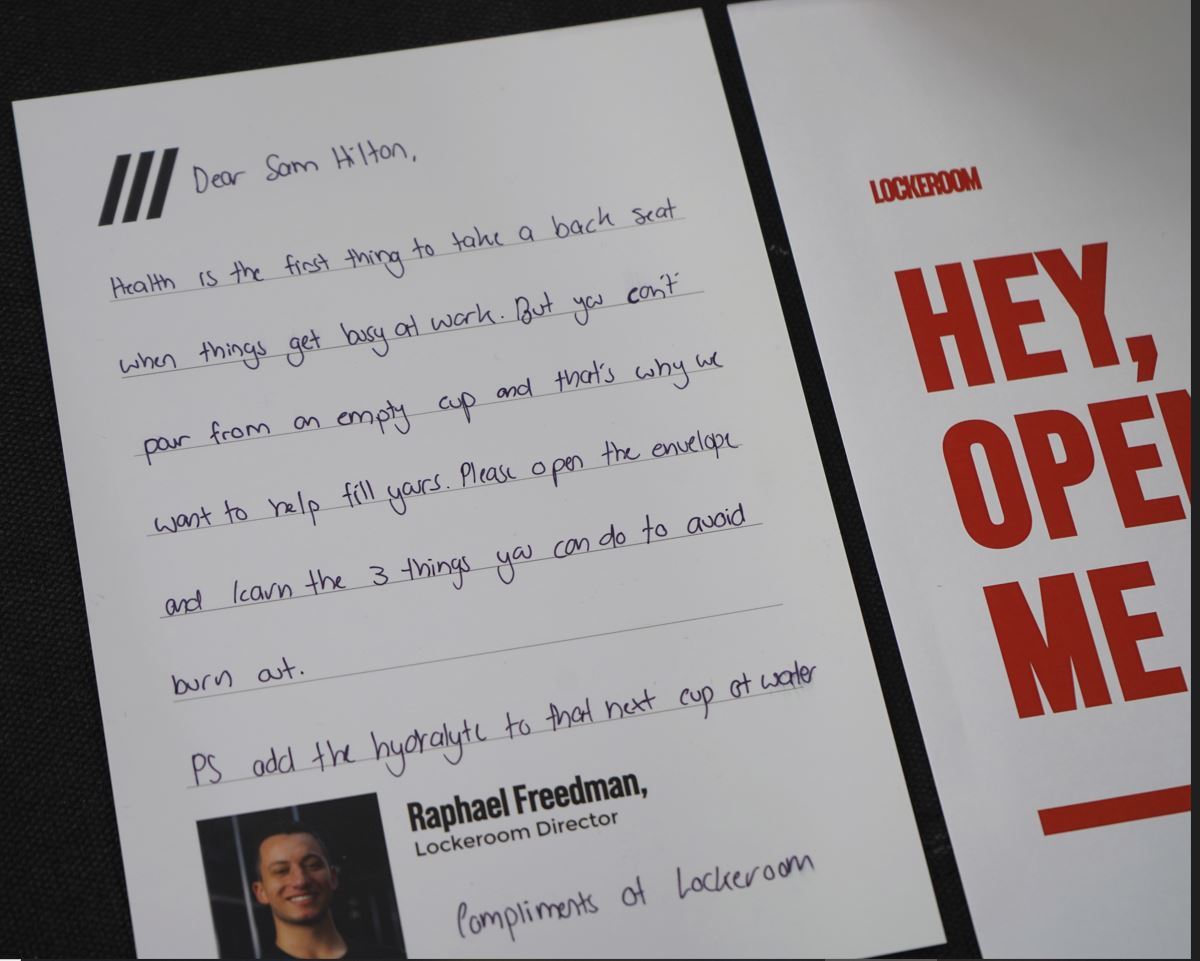 Dear Sam Hilton,
Health is the first thing to take a back seat
when things get busy at work. But you can't
pour from an empty cup and that's why we
want to help fill yours. Please open the envelope
and learn the 3 things you can do to avoid
burn out.
PS add the hydralyte to that next cup of water
Raphael Freedman,
Lockeroom Director
Compliments of Lockeroom
LOCKEROOM
HEY,
OPE
ME